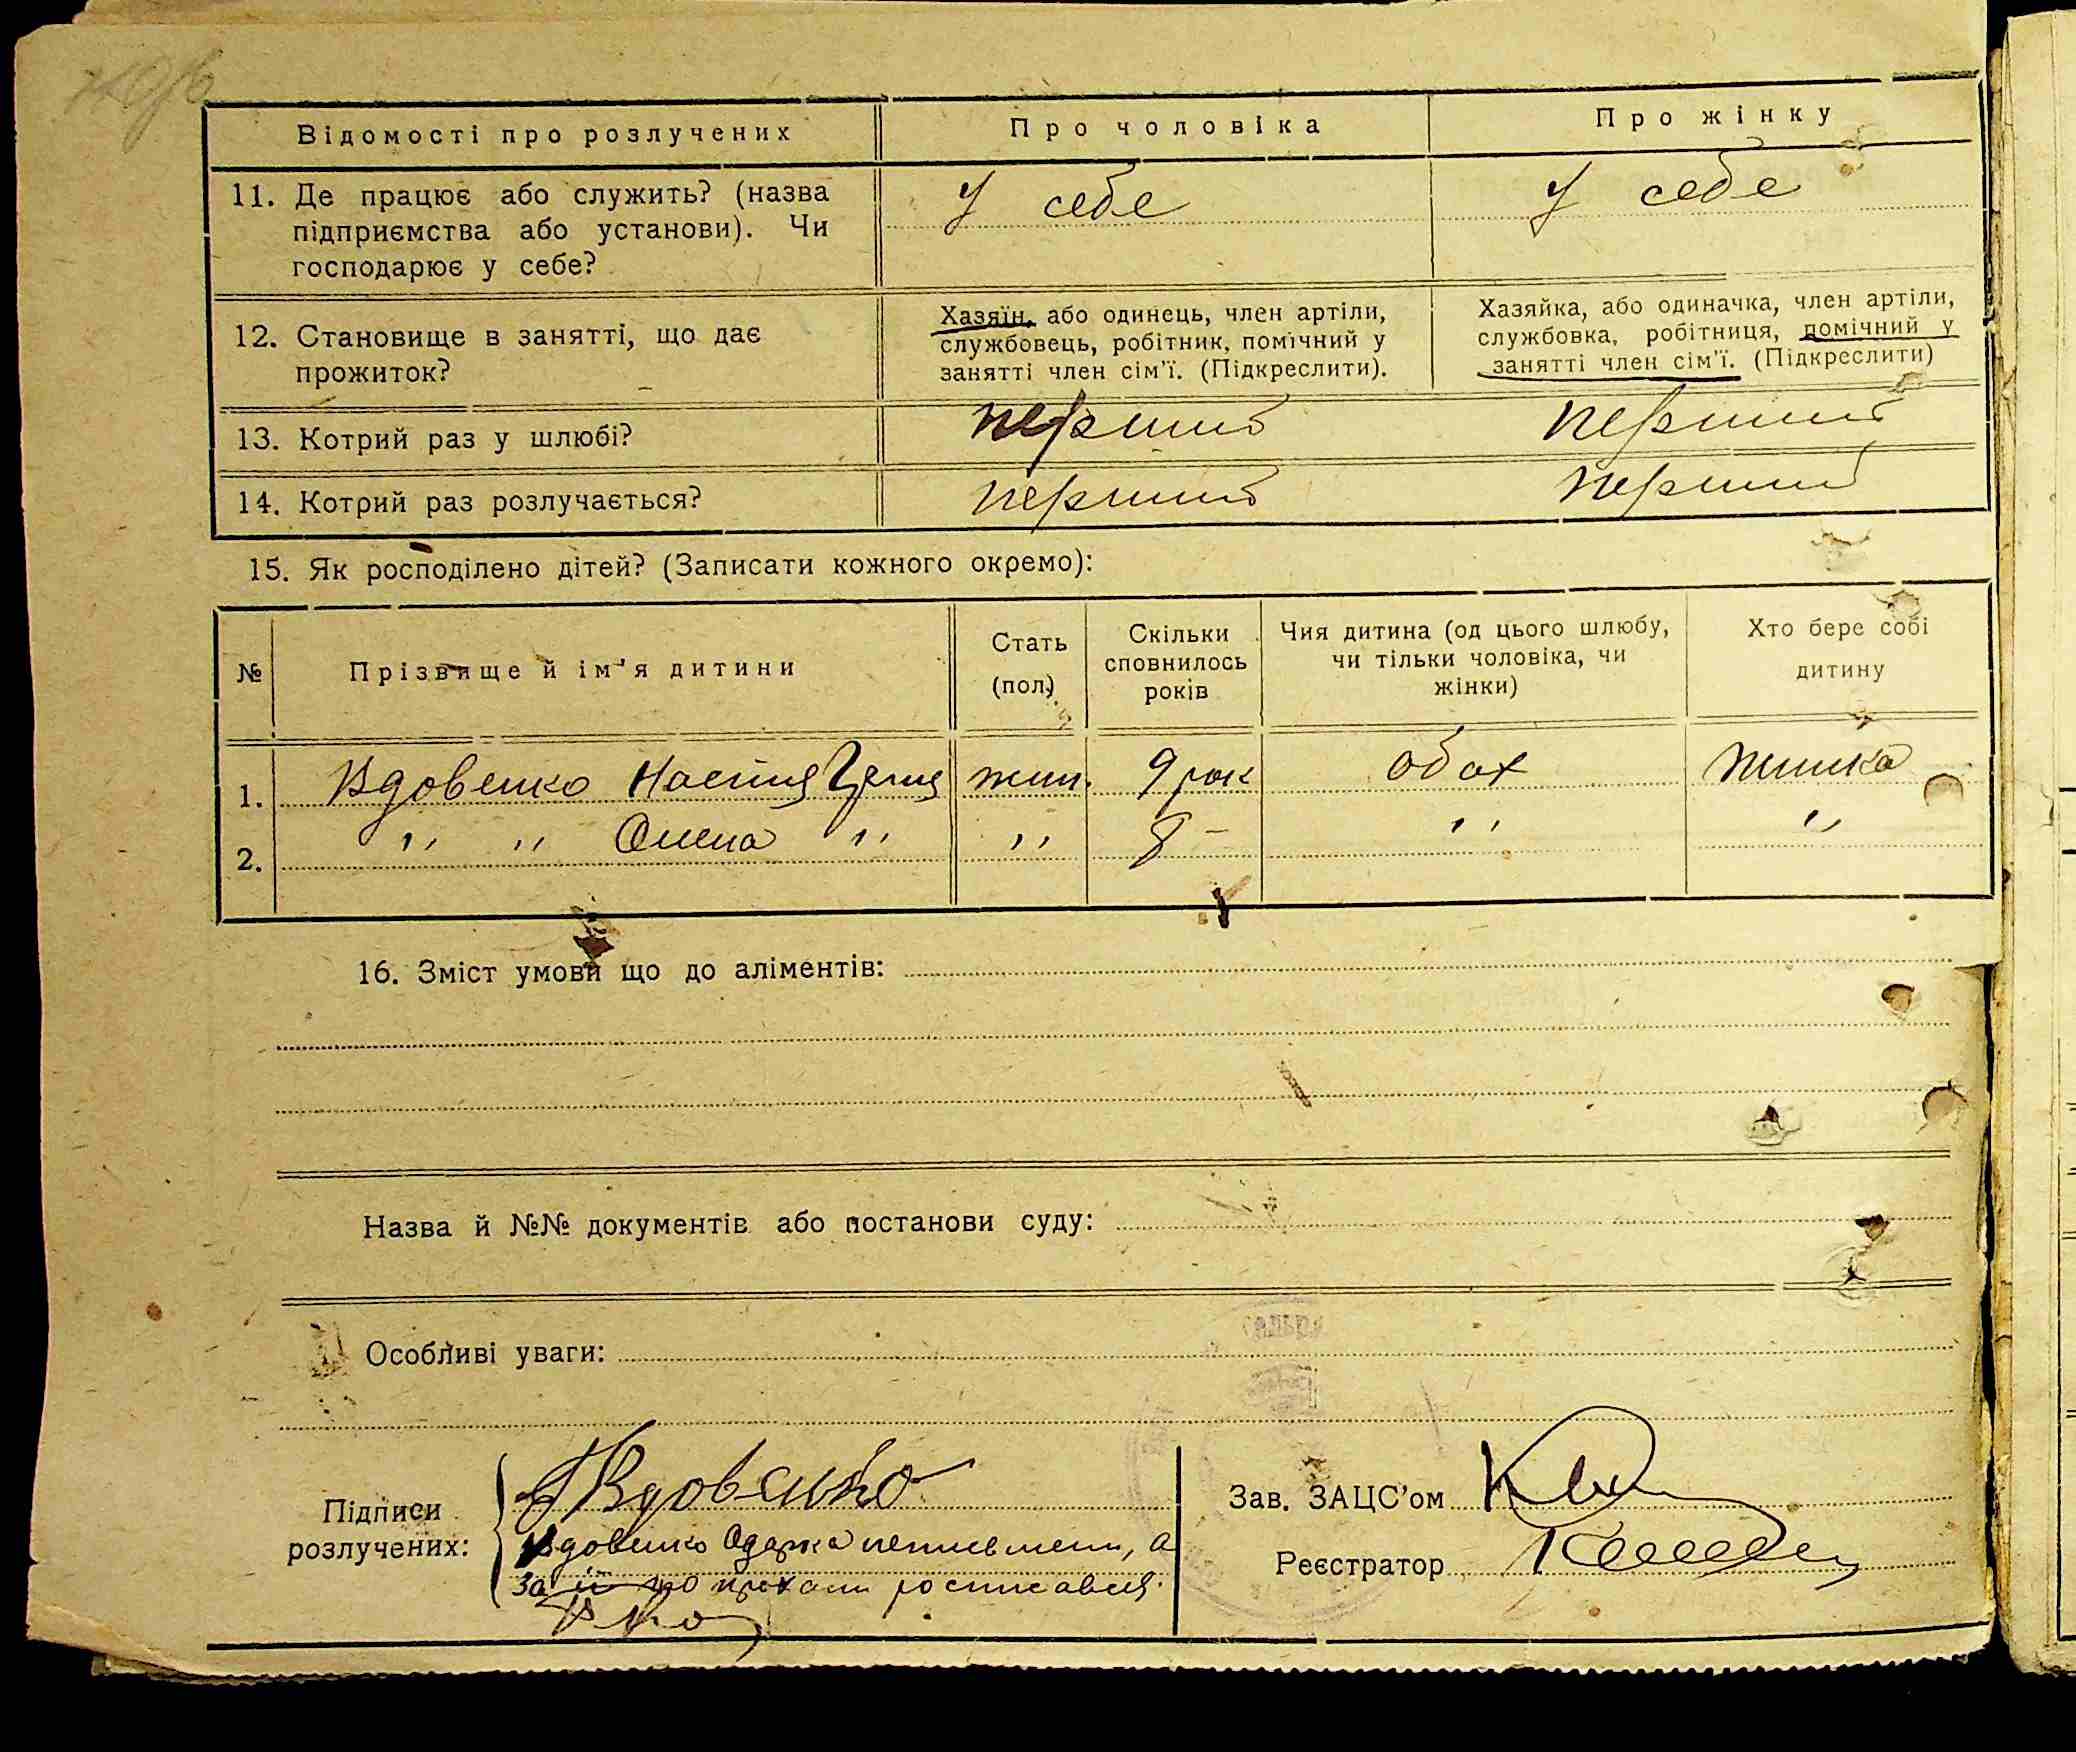 Відомості про розлучених Про чоловіка Про жінку
11. Де працює або служить? (назва підприємства або установи). Чи господарює у себе?
У себе У себе
12. Становище в занятті, що дає прожиток?
Хазяїн, або одинець, член артіли,
службовець, робітник, помічний у
занятті член сім'ї. (Підкреслити).
Хазяйка, або одиначка, член артіли,
службовка, робітниця, помічний у
занятті член сім'ї. (Підкреслити)
13. Котрий раз у шлюбі? перший перший
14. Котрий раз розлучається? перший перший
15. Як росподілено дітей? (Записати кожного окремо):
№ Прізвище й ім'я дитини Стать (пол.) Скільки сповнилось років Чия дитина (од цього шлюбу, чи тільки чоловіка, чи жінки) Хто бере собі дитину
1. Вдовенко Настя жин. 9 рок обох жинка
2. " " Олена " " 8 - " "
16. Зміст умови що до аліментів:
Назва й №№ документів або постанови суду:
Особливі уваги:
Підписи
розлучених:
Вдовенко
Вдовенко Одарка неписменн, а
за її по прохан росписався.
Зав. ЗАЦС'ом
Реєстратор